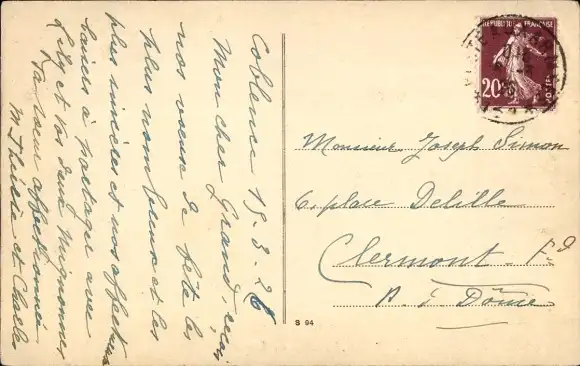 Coblence 15.3.26
Mon cher Grand, reçois
nos voeux de fête les
plus nombreux et les
plus sincères et nos affectueux
baisers à partager avec
Lily et vos deux mignonnes
Ta soeur affectionnée
M Thérèse et Charles
REPUBLIQUE FRANÇAISE
20
POSTES
Monsieur Joseph Simon
6, place Delille
Clermont-Fd
P. d Dôme
S 94